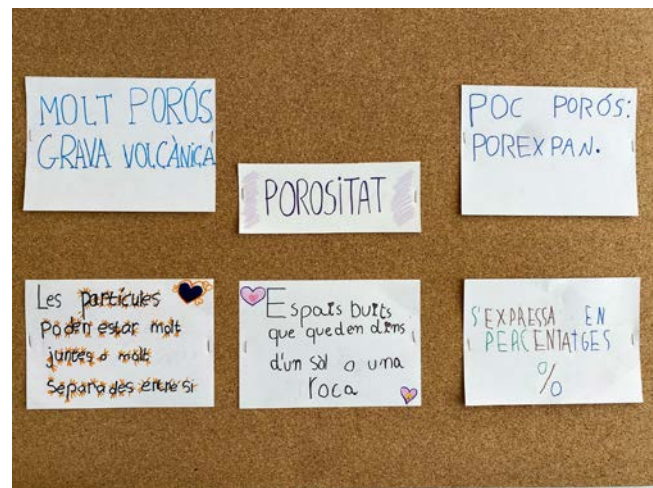 MOLT PORÓS
GRAVA VOLCÀNICA
POROSiTAT
POC PORÓS:
POREXPAN.
Les partícules
poden estar molt
juntes o molt
separades entre si
Espais buits
que queden dins
d'un sòl o una
roca
S'EXPRESSA EN
PERCENTATGES
%